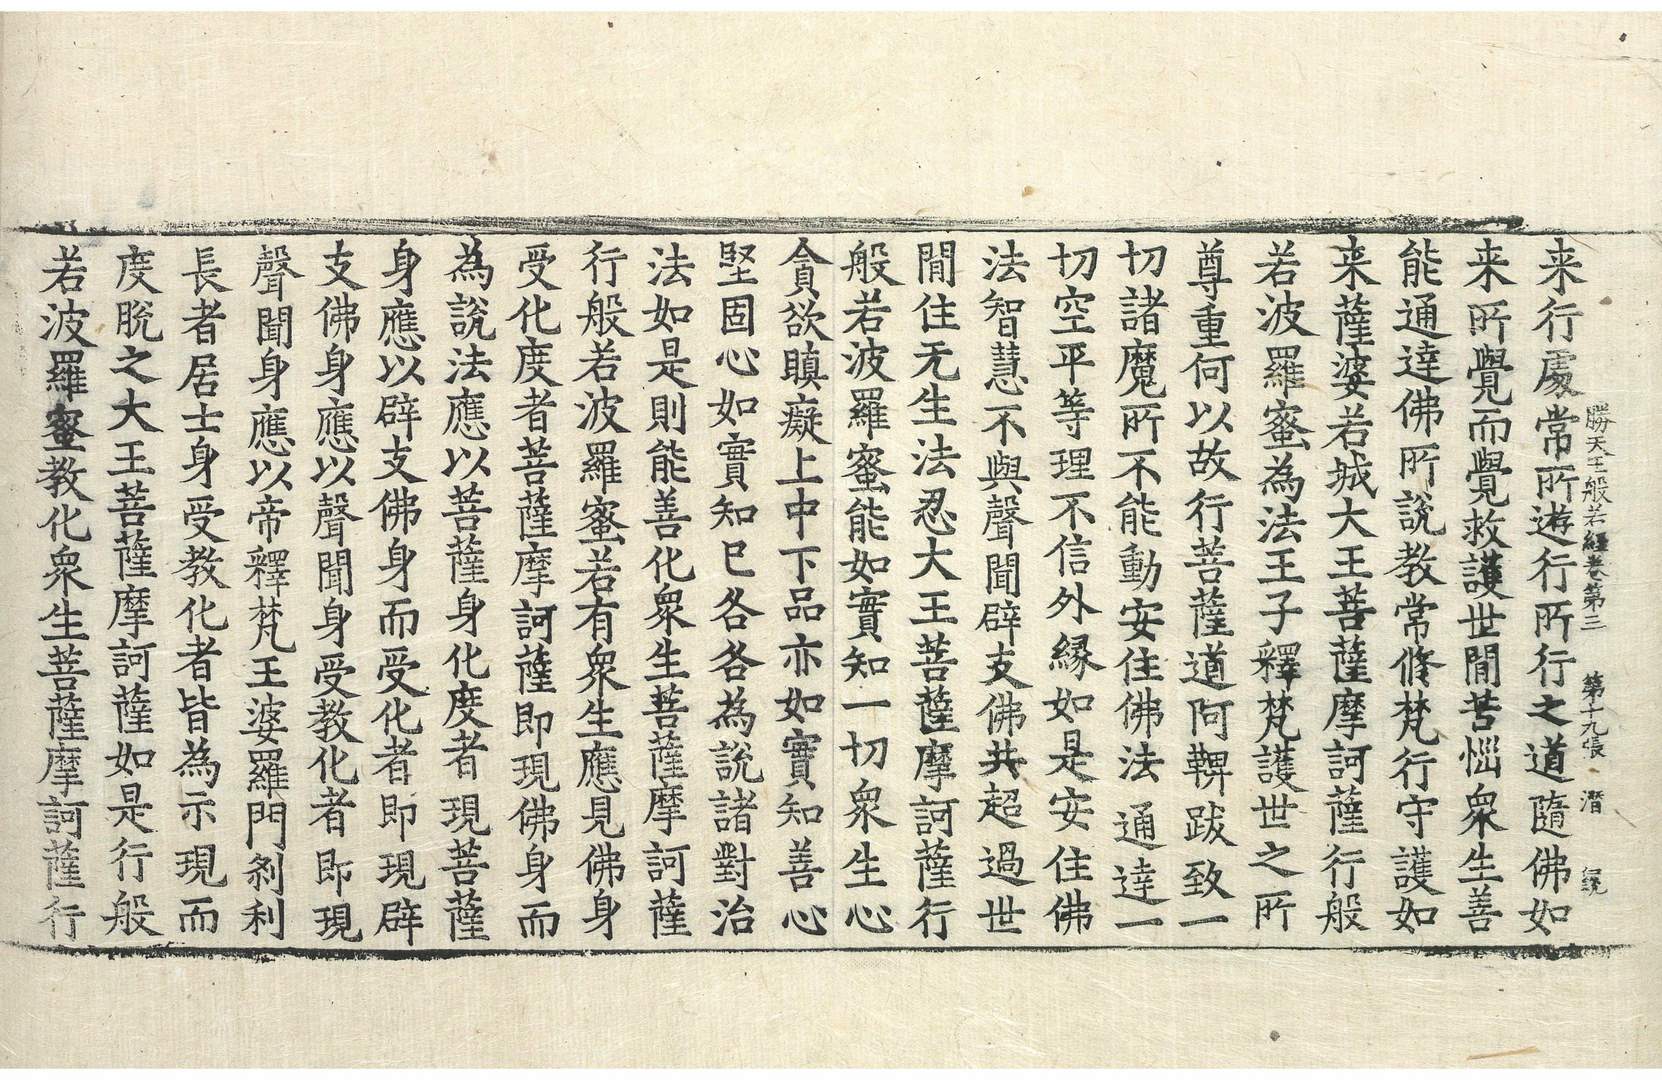 勝天王般若經卷第三 第十九張 潛
来行處常所遊行所行之道隨佛如
来所覺而覺救護世間苦惱衆生善
能通達佛所說教常脩梵行守護如
来薩婆若城大王菩薩摩訶薩行般
若波羅蜜為法王子釋梵護世之所
尊重何以故行菩薩道阿鞞跋致一
切諸魔所不能動安住佛法通達一
切空平等理不信外緣如是安住佛
法智慧不與聲聞辟支佛共超過世
間住无生法忍大王菩薩摩訶薩行
般若波羅蜜能如實知一切衆生心
貪欲瞋癡上中下品亦如實知善心
堅固心如實知已各各為說諸對治
法如是則能善化衆生菩薩摩訶薩
行般若波羅蜜若有衆生應見佛身
受化度者菩薩摩訶薩即現佛身而
為說法應以菩薩身化度者現菩薩
身應以辟支佛身而受化者即現辟
支佛身應以聲聞身受教化者即現
聲聞身應以帝釋梵王婆羅門剎利
長者居士身受教化者皆為示現而
度脫之大王菩薩摩訶薩如是行般
若波羅蜜教化衆生菩薩摩訶薩行